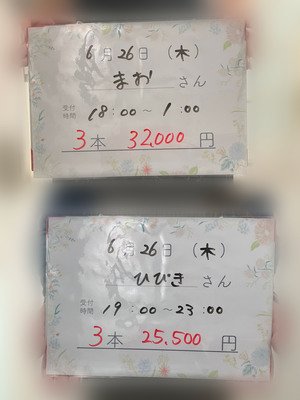 6月26日（木）
まお さん
受付時間 18:00〜1:00
3本 32,000円
6月26日（木）
ひびき さん
受付時間 19:00〜23:00
3本 25,500円